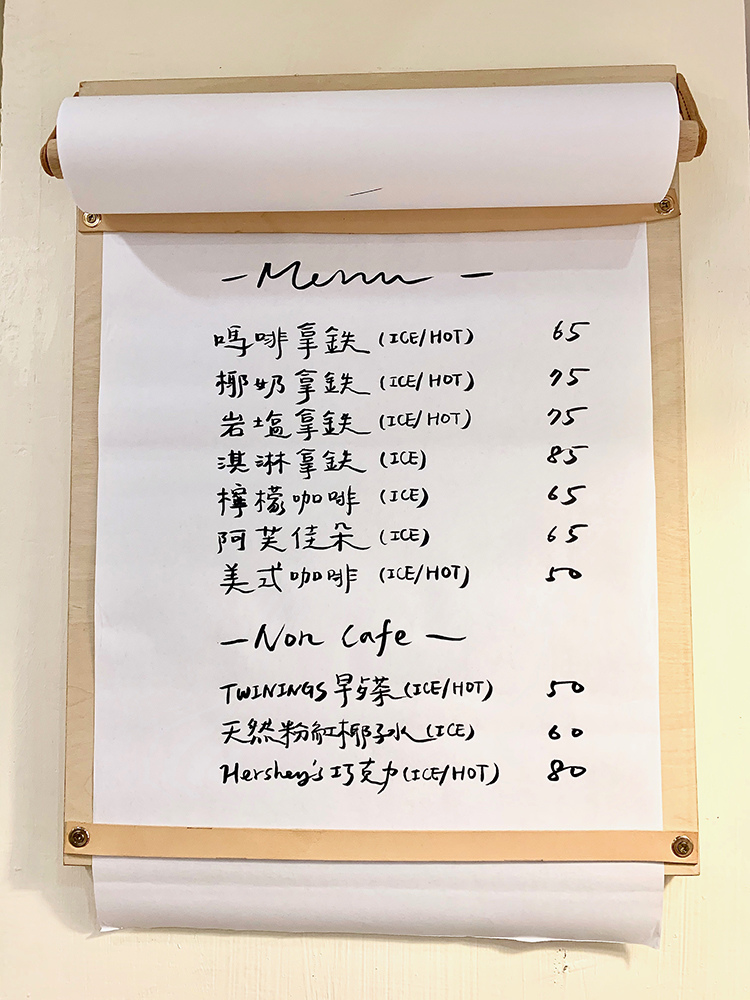 - Menu -
嗎啡拿鉄 (ICE/HOT) 65
椰奶拿鉄 (ICE/HOT) 75
岩塩拿鉄 (ICE/HOT) 75
淇淋拿鉄 (ICE) 85
檸檬咖啡 (ICE) 65
阿芙佳朵 (ICE) 65
美式咖啡 (ICE/HOT) 50
- Non Cafe -
TWININGS 早歺茶 (ICE/HOT) 50
天然粉紅椰子水 (ICE) 60
Hershey's 巧克力 (ICE/HOT) 80